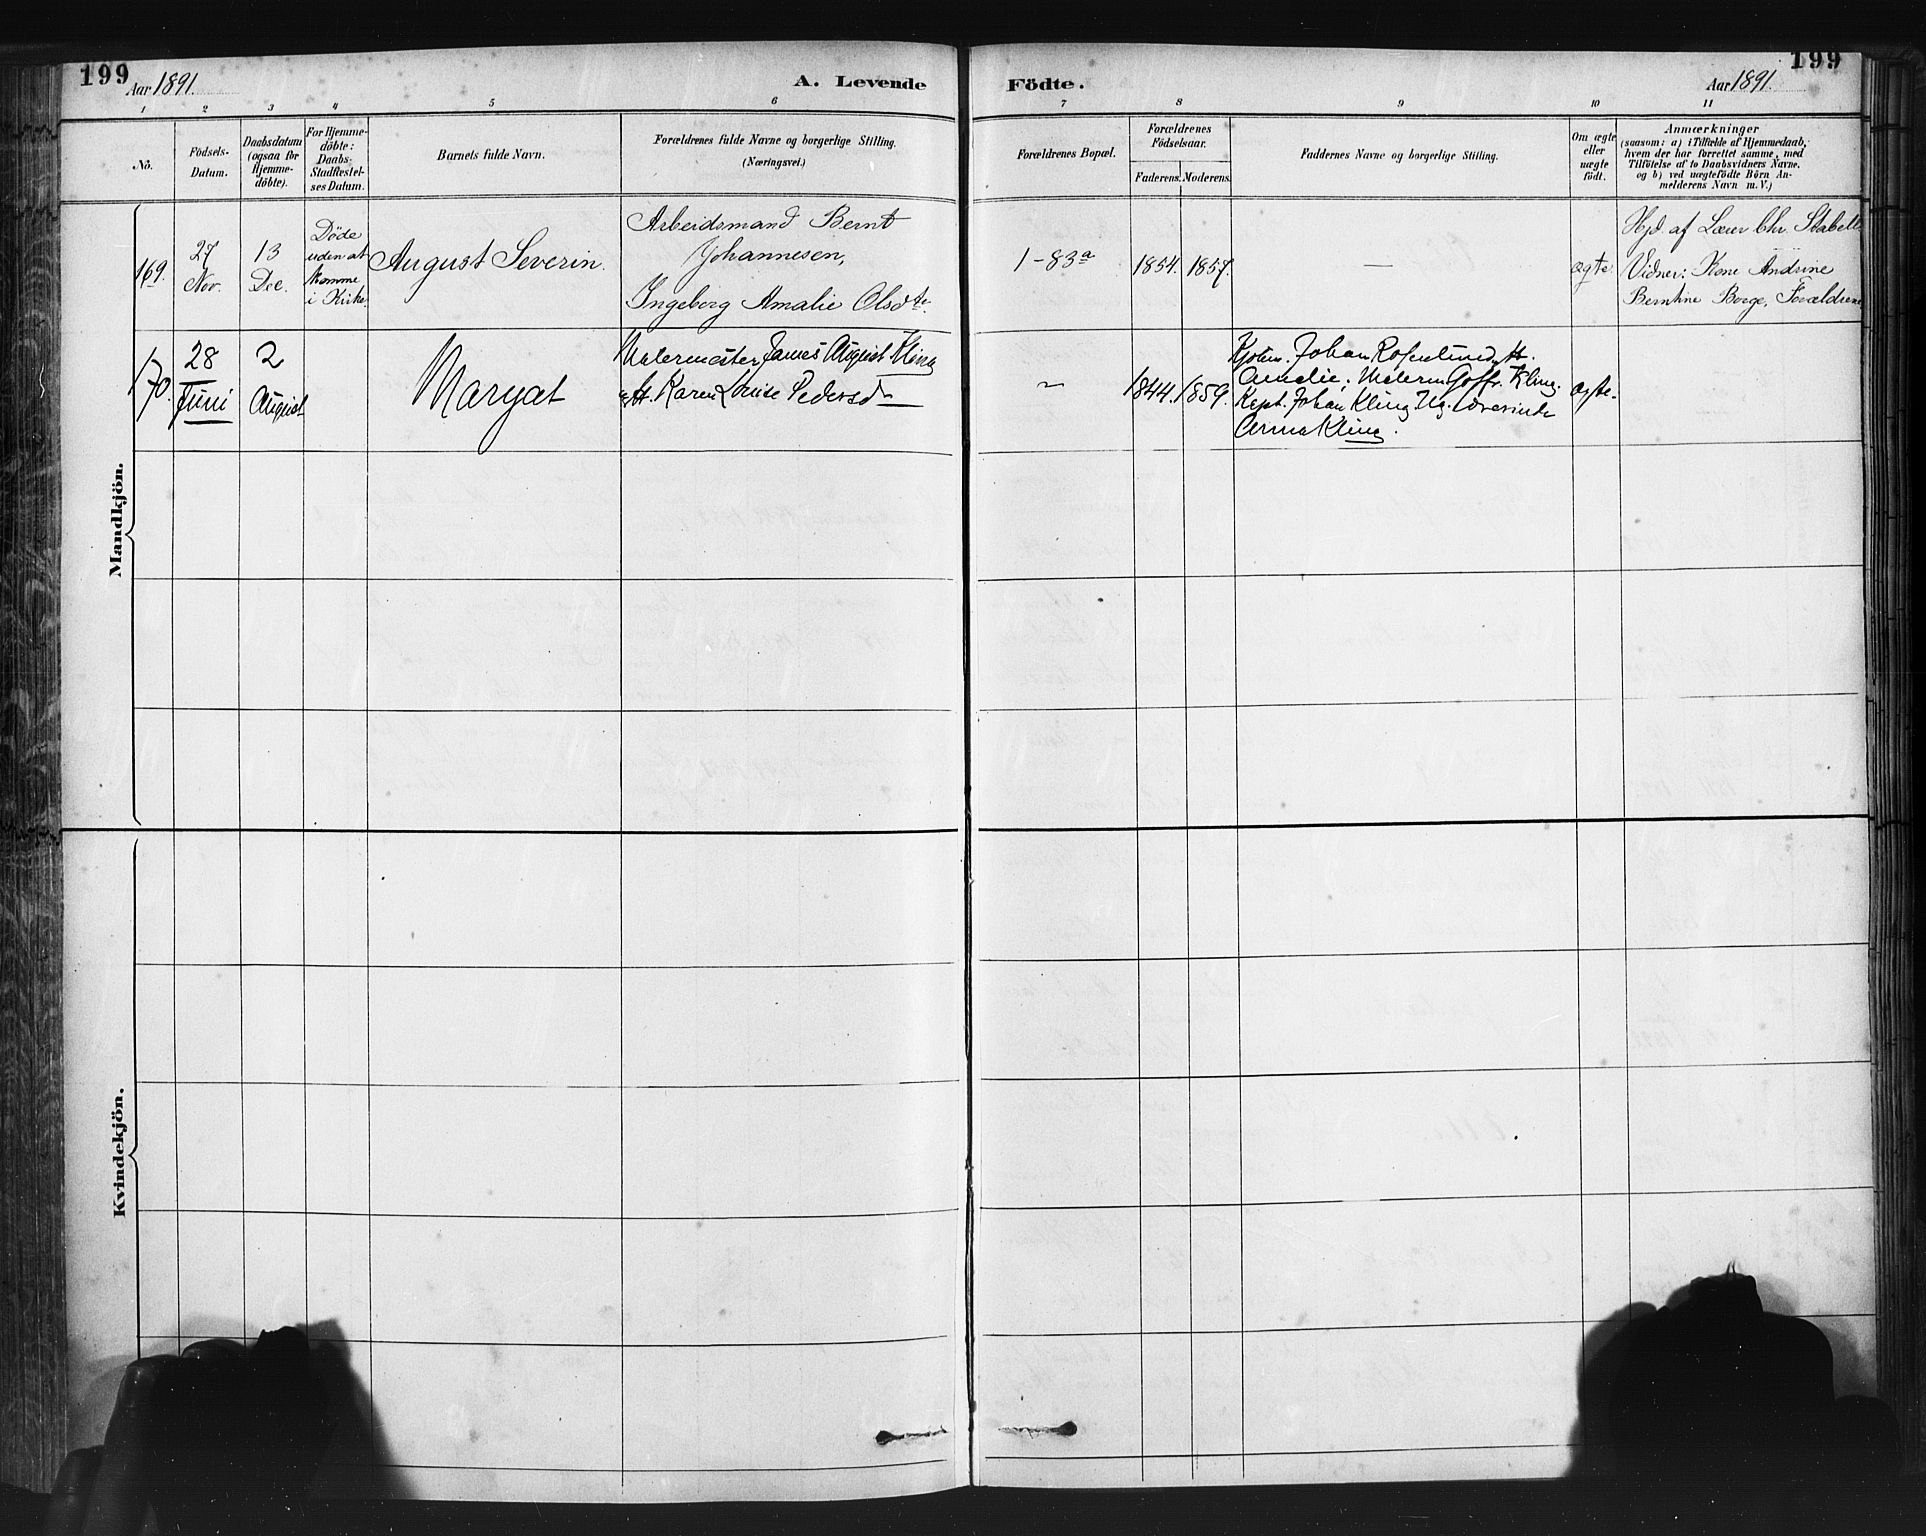 199
Aar 1891.
A. Levende Födte.
Aar 1891.
199
1 2 3 4 5 6 7 8 9 10 11
No.
Födsels-
Datum.
Daabsdatum
(ogsaa for
Hjemme-
döbte).
For Hjemme-
döbte:
Daabs-
Stadfæstel-
ses Datum.
Barnets fulde Navn.
Forældrenes fulde Navne og borgerlige Stilling.
(Næringsvei.)
Forældrenes Bopæl.
Forældrenes
Födselsaar.
Faderens. Moderens.
Faddernes Navne og borgerlige Stilling.
Om ægte
eller
uægte
födt.
Anmærkninger
(saasom: a) i Tilfælde af Hjemmedaab,
hvem der har forrettet samme, med
Tilföielse af to Daabsvidners Navne.
og b) ved uægtefödte Börn An-
melderens Navn m. V.)
Mandkjön.
169.
27
Nov.
13
Dec.
Døde
uden at
komme
i Kirke
August Severin.
Arbeidsmand Bernt
Johannesen,
Ingeborg Amalie Olsdtr.
1-83a
1854. 1857.
—
ægte.
Hjd. af Lærer Chr. Stabell
Vidner: Kone Andrine
Berntine Borge, Forældrene
170.
28
Juni
2
August
Maryat
Malermester James August Kling
og H. Karen Louise Pedersd
~
1844. 1859.
Kjøbm. Johan Rosenlund, H.
Amalie; Malerm Gotfr. Kling.
Kept. Johan Kling. Ug. Lærerinde
Anna Kling.
Ægte.
Kvindekjön.